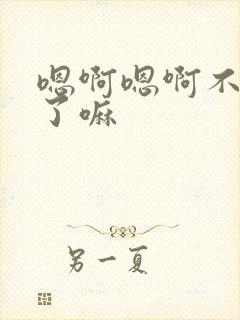 嗯啊嗯啊不
了嘛
另一夏